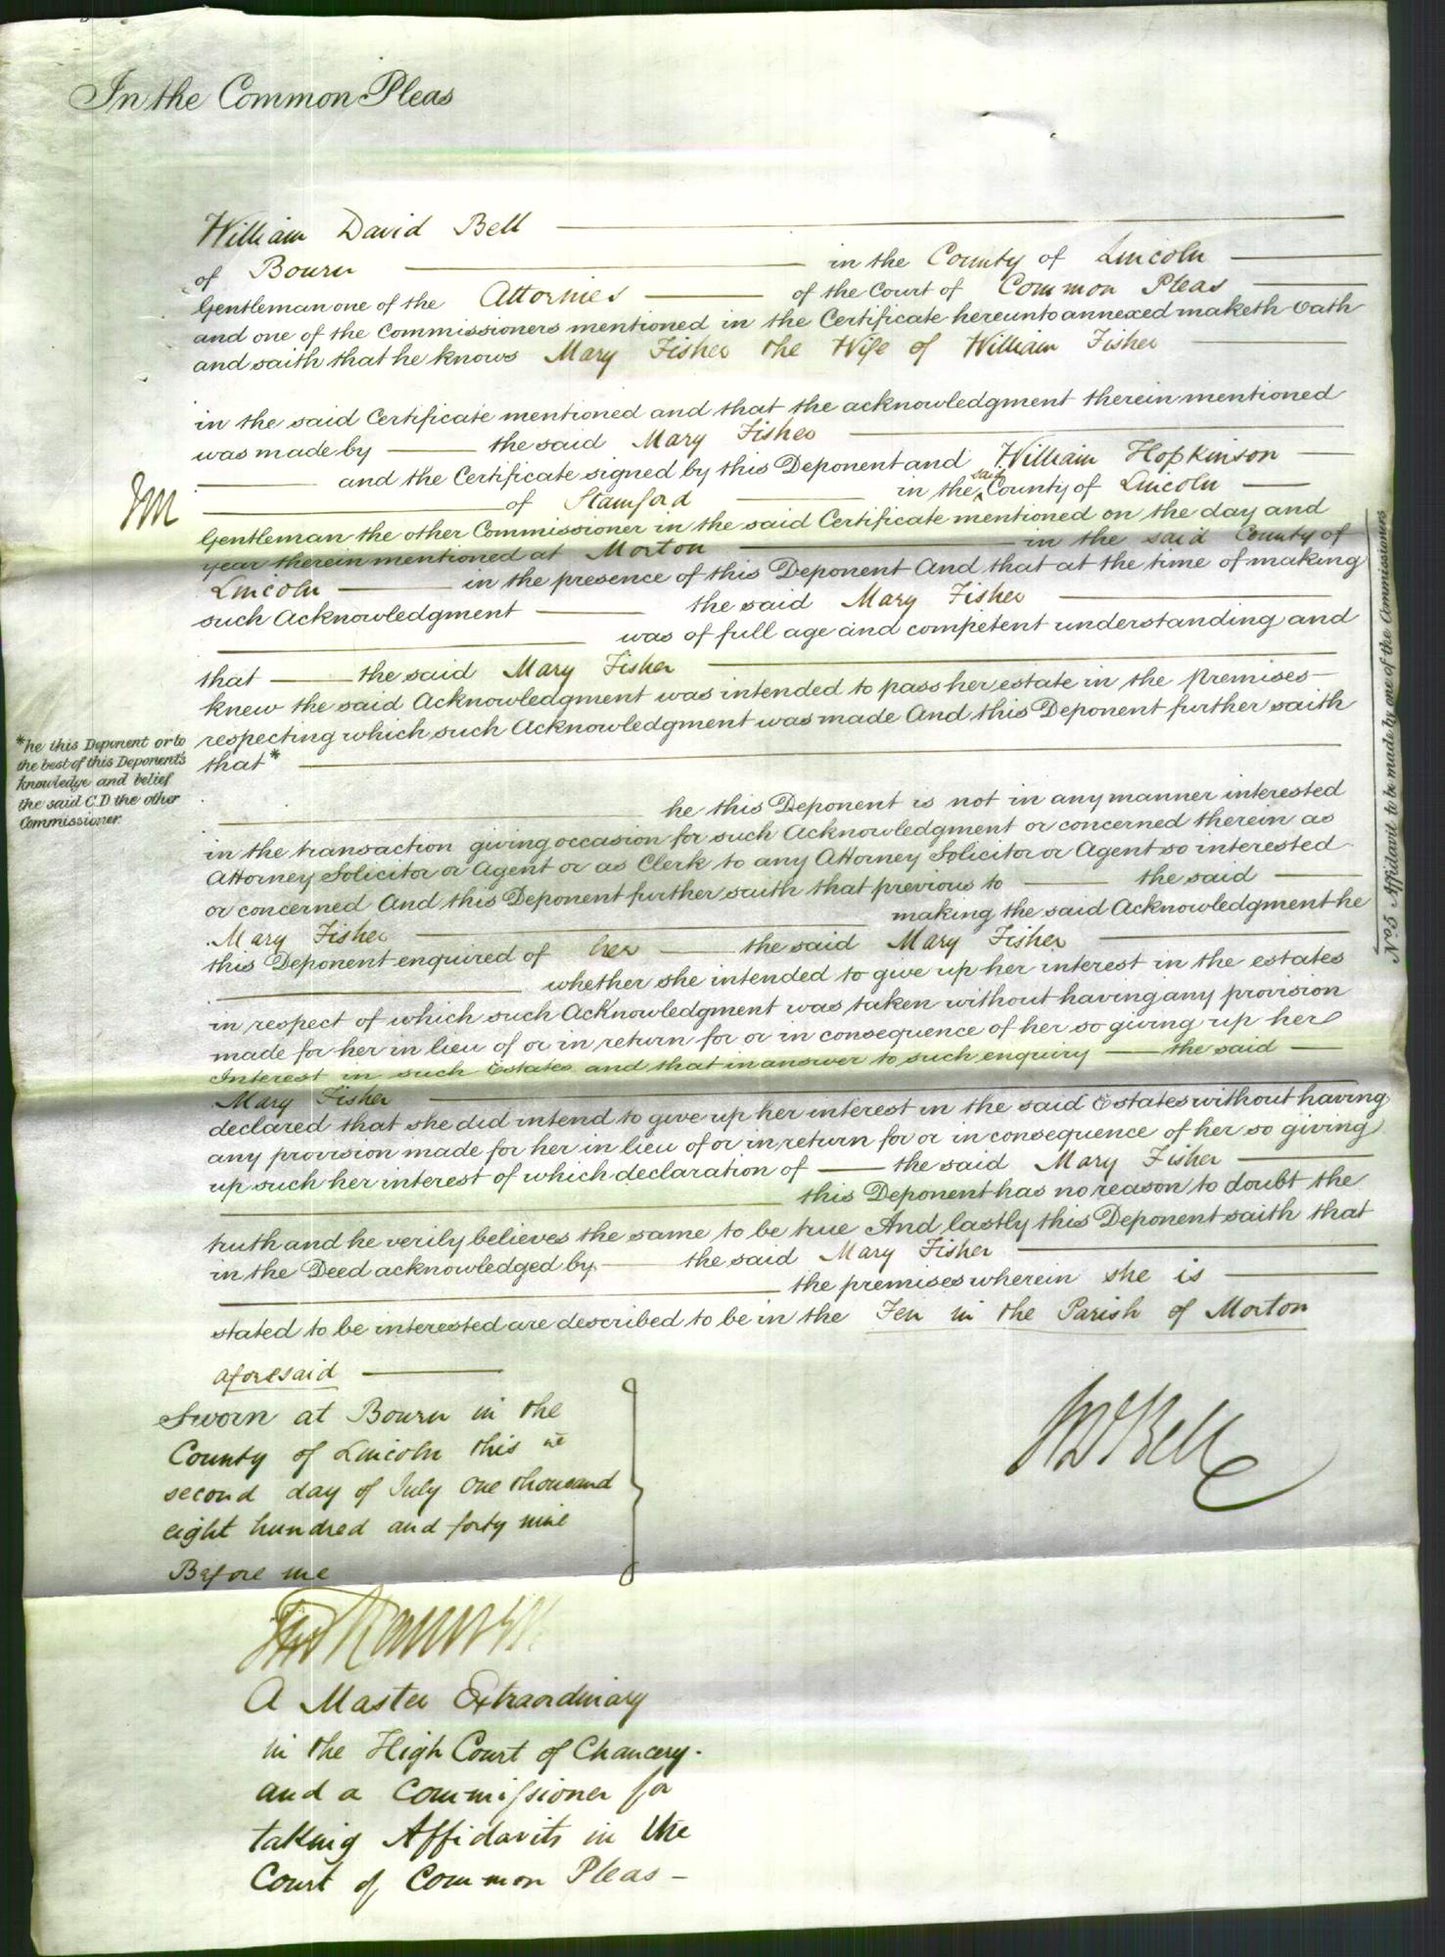 In the Common Pleas
William David Bell
of Bourn in the County of Lincoln
Gentleman one of the Attornies of the Court of Common Pleas
and one of the Commissioners mentioned in the Certificate hereunto annexed maketh Oath
and saith that he knows Mary Fisher the Wife of William Fisher
in the said Certificate mentioned and that the acknowledgment therein mentioned
was made by the said Mary Fisher
and the Certificate signed by this Deponent and William Hopkinson
of Stamford in the said County of Lincoln
Gentleman the other Commissioner in the said Certificate mentioned on the day and
year therein mentioned at Morton in the said County of
Lincoln in the presence of this Deponent And that at the time of making
such Acknowledgment the said Mary Fisher
was of full age and competent understanding and
that the said Mary Fisher
knew the said Acknowledgment was intended to pass her estate in the premises
respecting which such Acknowledgment was made And this Deponent further saith
that*
*he this Deponent or to
the best of this Deponent's
knowledge and belief
the said C.D the other
Commissioner.
he this Deponent is not in any manner interested
in the transaction giving occasion for such Acknowledgment or concerned therein as
Attorney Solicitor or Agent or as Clerk to any Attorney Solicitor or Agent so interested
or concerned And this Deponent further saith that previous to the said
Mary Fisher making the said Acknowledgment he
this Deponent enquired of her the said Mary Fisher
whether she intended to give up her interest in the estates
in respect of which such Acknowledgment was taken without having any provision
made for her in lieu of or in return for or in consequence of her so giving up her
Interest in such Estates and that in answer to such enquiry the said
Mary Fisher
declared that she did intend to give up her interest in the said Estates without having
any provision made for her in lieu of or in return for or in consequence of her so giving
up such her interest of which declaration of the said Mary Fisher
this Deponent has no reason to doubt the
truth and he verily believes the same to be true And lastly this Deponent saith that
in the Deed acknowledged by the said Mary Fisher
the premises wherein she is
stated to be interested are described to be in the Fen in the Parish of Morton
aforesaid
Sworn at Bourn in the
County of Lincoln this
second day of July One thousand
eight hundred and forty nine
Before me
W D Bell
A Master Extraordinary
in the High Court of Chancery.
and a Commissioner for
taking Affidavits in the
Court of Common Pleas –
No. 5 Affidavit to be made by one of the Commissioners